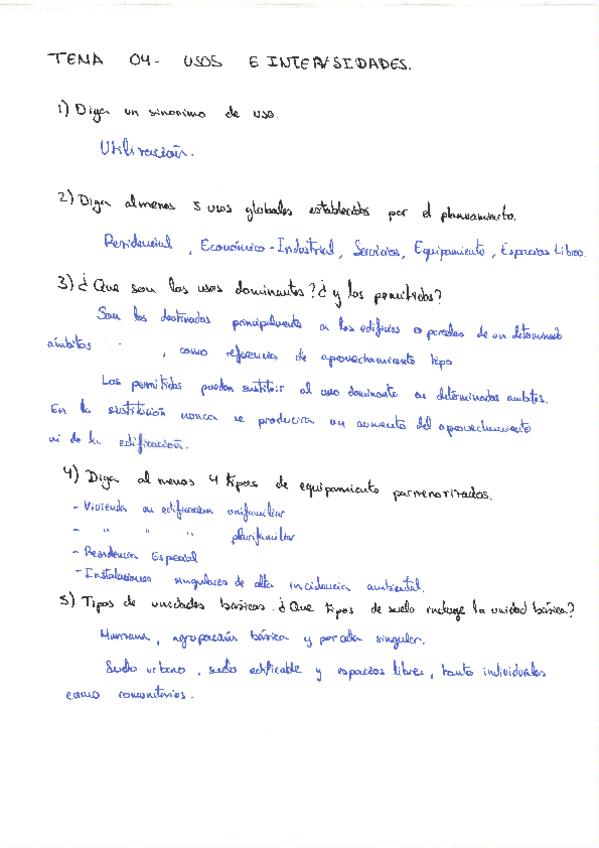 TEMA 04- USOS E INTENSIDADES.
1) Diga un sinonimo de uso.
Utilización.
2) Diga almenos 5 usos globales establecidos por el planeamiento.
Residencial, Económico-Industrial, Servicios, Equipamiento, Espacios Libres.
3) ¿Que son los usos dominantes? ¿y los permitidos?
Son los destinados principalmente a los edificios o parcelas de un determinado
ámbitos , como referencia de aprovechamiento tipo
Los permitidos pueden sustituir al uso dominante en determinados ambitos.
En la sustitución nunca se producira un aumento del aprovechamiento
ni de la edificación.
4) Diga al menos 4 tipos de equipamiento pormenorizados.
- Vivienda en edificacion unifamiliar
- " " " plurifamiliar
- Residencia Especial
- Instalaciones singulares de alta incidencia ambiental.
5) Tipos de unidades basicas. ¿Que tipos de suelo incluye la unidad básica?
Manzana, agrupación básica y parcela singular.
Suelo urbano, suelo edificable y espacios libres, tanto individuales
como comunitarios.